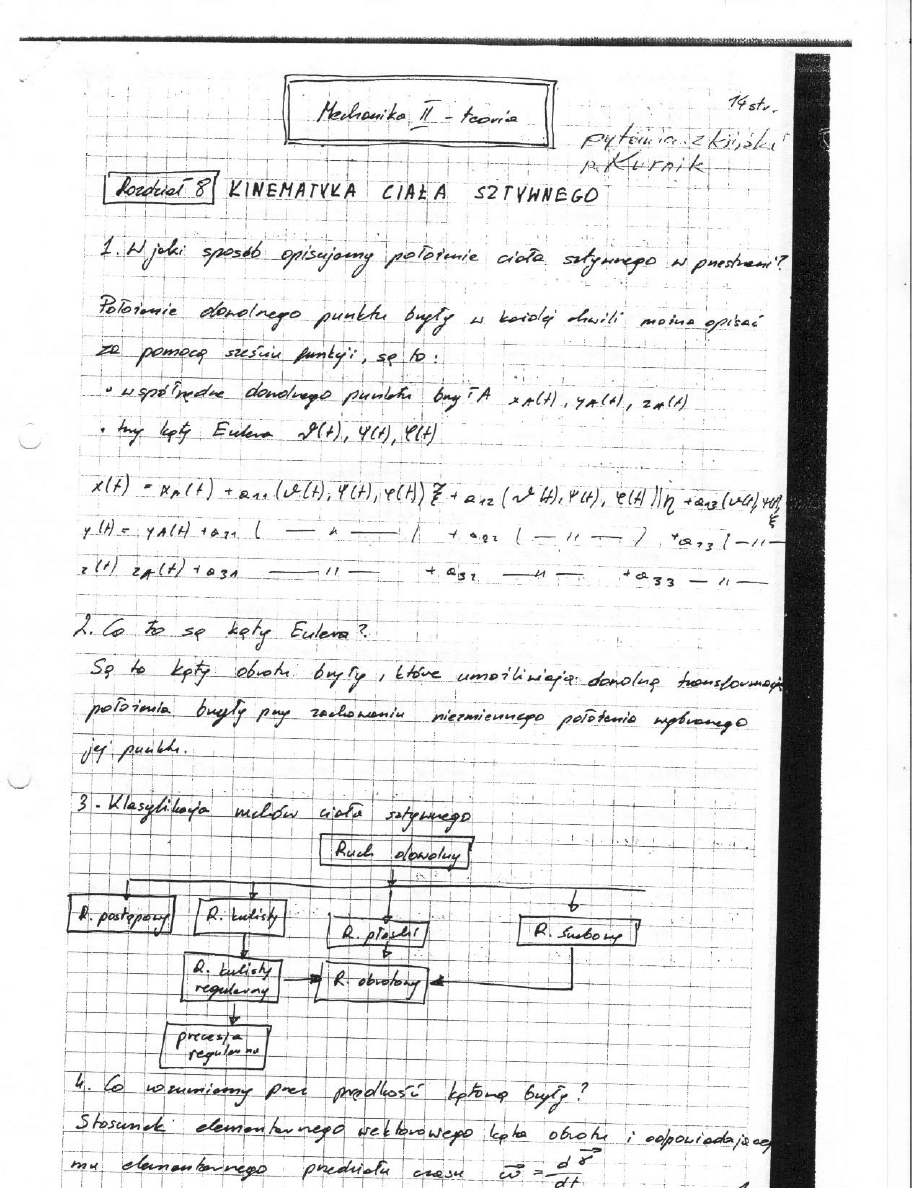 Mechanika II - teoria
14 str.
pytania z książki
p. Kurnik
Rozdział 8 KINEMATYKA CIAŁA SZTYWNEGO
1. W jaki sposób opisujemy położenie ciała sztywnego w przestrzeni?
Położenie dowolnego punktu bryły w każdej chwili można opisać
za pomocą sześciu funkcji, są to:
• współrzędne dowolnego punktu bryły A xA(t), yA(t), zA(t)
• trzy kąty Eulera ϑ(t), ψ(t), φ(t)
x(t) = xA(t) + a11 (ϑ(t), ψ(t), φ(t)) ξ + a12 (ϑ(t), ψ(t), φ(t)) η + a13 (ϑ(t), ψ(t),
y(t) = yA(t) + a21 ( — " — ) + a22 ( — " — ) + a23 ( — " —
z(t) zA(t) + a31 — " — + a32 — " — + a33 — " —
2. Co to są kąty Eulera?
Są to kąty obrotu bryły, które umożliwiają dowolną transformację
położenia bryły przy zachowaniu niezmiennego położenia wybranego
jej punktu.
3. Klasyfikacja ruchów ciała sztywnego
Ruch dowolny
R. postępowy R. kulisty R. płaski R. śrubowy
R. kulisty regularny R. obrotowy
precesja regularna
4. Co rozumiemy przez prędkość kątową bryły?
Stosunek elementarnego wektorowego kąta obrotu i odpowiadającego
mu elementarnego przedziału czasu ω⃗ = dγ⃗/dt